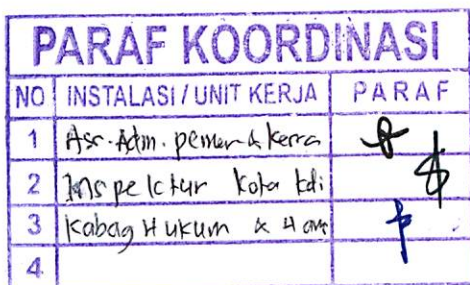 PARAF KOORDINASI
NO INSTALASI / UNIT KERJA PARAF
1 Asr. Adm. pemer & kerra
2 Inspektur Kota Kdi
3 Kabag Hukum & Ham
4